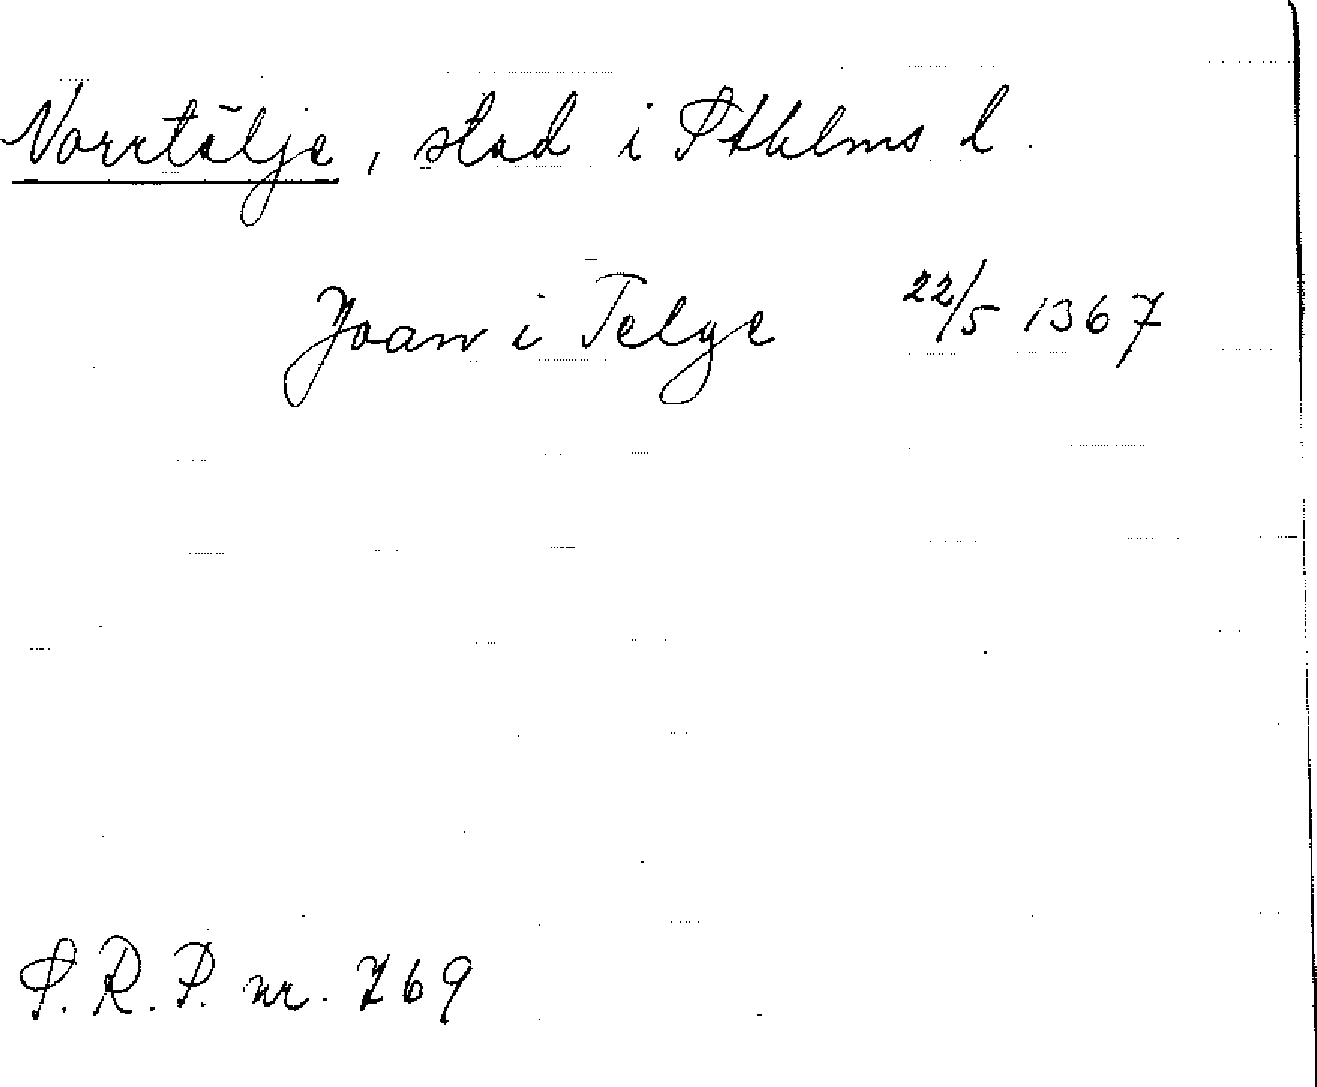 Norrtälje, stad i Sthlms l.
Joan i Telge 22/5 1367
S.R.P. nr. 769